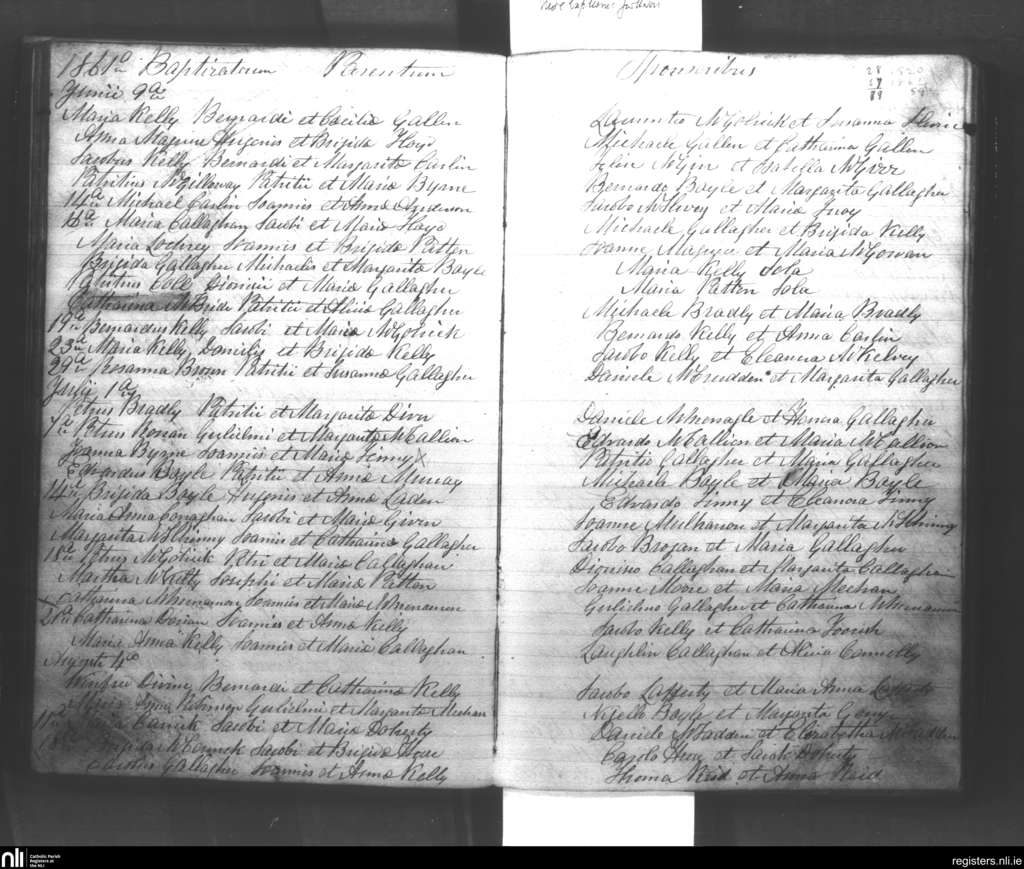 1861º Baptizatorum Parentum
Junii 9ª
Maria Kelly Bernardi et Cecilia Gallen
Anna Maguire Eugenii et Brigida Floyd
Jacobus Kelly Bernardi et Margarita Carlin
Patritius McGilloway Patritii et Maria Byrne
14ª Michael Carlin Joannis et Anna Anderson
16ª Maria Callaghan Jacobi et Maria
Maria Joannis et Brigida Patten
Brigida Gallagher Michaelis et Margarita Boyle
Patritius Coll Dionisii et Maria Gallagher
Catharina McBride Patritii et Alicia Gallagher
19ª Bernardus Kelly Jacobi et Maria McGolrick
23ª Maria Kelly Danielis et Brigida Kelly
29ª Rosanna Brown Patritii et Susanna Gallagher
Julii 1ª
Petrus Bradly Patritii et Margarita Diver
7ª Petrus Gulielmi et Margarita McCallion
Joanna Byrne Joannis et Maria Finny X
Edwardus Boyle Patritii et Annie Murray
14ª Brigida Boyle Hugonis et Anna
Maria Anna Conaghan Jacobi et Maria Given
Margarita McIlhinny Joannis et Catharina Gallagher
18ª Petrus McGolrick Petri et Maria Callaghan
Martha Josephi et Maria Patton
Catharina McMenamen Joannis et Maria McMenamen
21ª Catharina Joannis et Anna Kelly
Maria Anna Kelly Joannis et Maria Callaghan
Augusti 4º
Diviny Bernardi et Catharina Kelly
Anna Robinson Gulielmi et Margarita Meehan
Jacobi et Maria Doherty
Brigida McCormick Jacobi et Brigida
Carolus Gallagher Joannis et Anna Kelly
Sponsoribus
McGolrick et Susanna
Michaele Gallen et Catharina Gallen
et Isabella McGiver
Bernardo Boyle et Margarita Gallagher
Jacobo McIlwey et Maria
Michaele Gallagher et Brigida Kelly
Joanne Maguire et Maria McGowan
Maria Kelly Sola
Maria Patton Sola
Michaele Bradly et Maria Bradly
Bernardo Kelly et Anna Carlin
Jacobo Kelly et Eleanora McKelvey
Daniele McCrudden et Margarita Gallagher
Daniele McMenagle et Honora Gallagher
Edwardo McCallion et Maria McCallion
Patritio Gallagher et Maria Gallagher
Michaele Boyle et Maria Boyle
Edwardo Finny et Eleanora Finny
Joanne Mulhanon et Margarita McIlhinny
Jacobo Brogan et Maria Gallagher
Dionisio Callaghan et Margarita Callaghan
Joanne Moore et Maria Meehan
Gulielmo Gallagher et Catharina McMenamen
Jacobo Kelly et Catharina
Laughlin Callaghan et Alicia Connolly
Jacobo Lafferty et Maria Anna Lafferty
Nigello Boyle et Margarita
Daniele McFadden et Elizabetha McFadden
Carolo et Sarah Doherty
Thoma Reid et Anna Reid
nli
Catholic Parish
Registers at
the NLI
registers.nli.ie